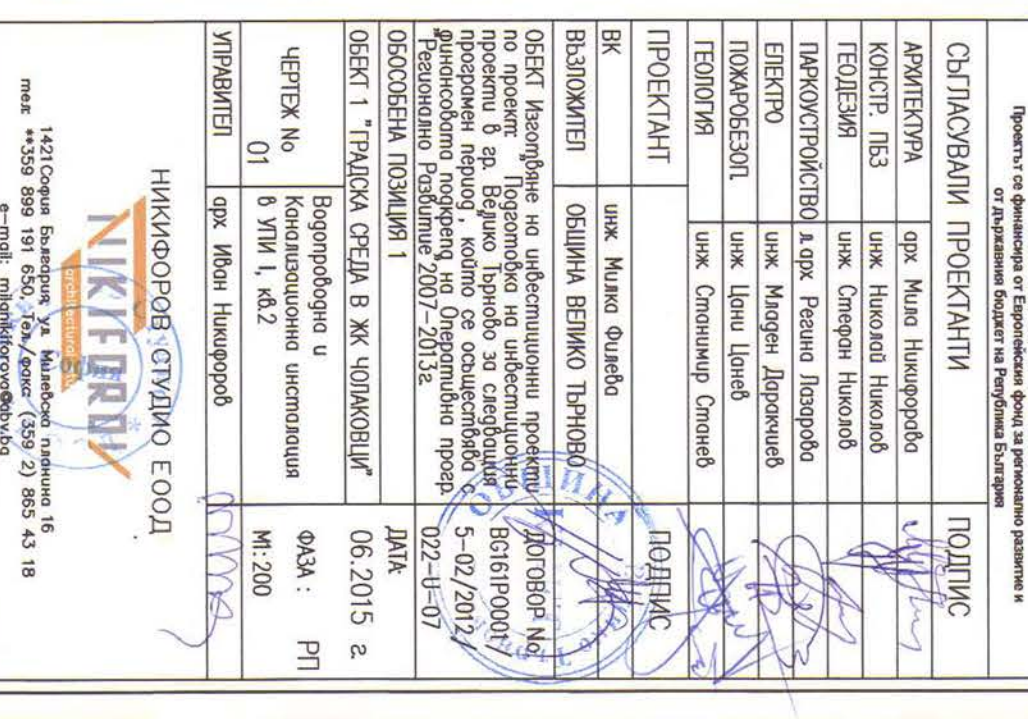 Проектът се финансира от Европейския фонд за регионално развитие и
от държавния бюджет на Република България
СЪГЛАСУВАЛИ ПРОЕКТАНТИ ПОДПИС
АРХИТЕКТУРА арх Мила Никифорова
КОНСТР. ПБЗ инж Николай Николов
ГЕОДЕЗИЯ инж Стефан Николов
ПАРКОУСТРОЙСТВО л.арх Регина Лазарова
ЕЛЕКТРО инж Младен Даракчиев
ПОЖАРОБЕЗОП. инж Цани Цанев
ГЕОЛОГИЯ инж Станимир Станев
ПРОЕКТАНТ ПОДПИС
ВК инж Милка Филева
ВЪЗЛОЖИТЕЛ ОБЩИНА ВЕЛИКО ТЪРНОВО
ОБЕКТ Изготвяне на инвестиционни проекти
по проект: "Подготовка на инвестиционни
проекти в гр. Велико Търново за следващия
програмен период, който се осъществява с
финансовата подкрепа на Оперативна прогр.
"Регионално Развитие"2007-2013г.
ДОГОВОР No
BG161PO001/
5-02/2012/
022-U-07
ОБОСОБЕНА ПОЗИЦИЯ 1
ОБЕКТ 1 "ГРАДСКА СРЕДА В ЖК ЧОЛАКОВЦИ"
ДАТА:
06.2015 г.
ЧЕРТЕЖ No
01
Водопроводна и
Канализационна инсталация
в УПИ I, кв.2
ФАЗА : РП
М1:200
УПРАВИТЕЛ арх Иван Никифоров
НИКИФОРОВ СТУДИО ЕООД
NIKIFOROV
architectural
1421 София България; ул. Милевска планина 16
тел: **359 899 191 650, Тел./факс: (359 2) 865 43 18
e-mail: milanikiforova@abv.bg